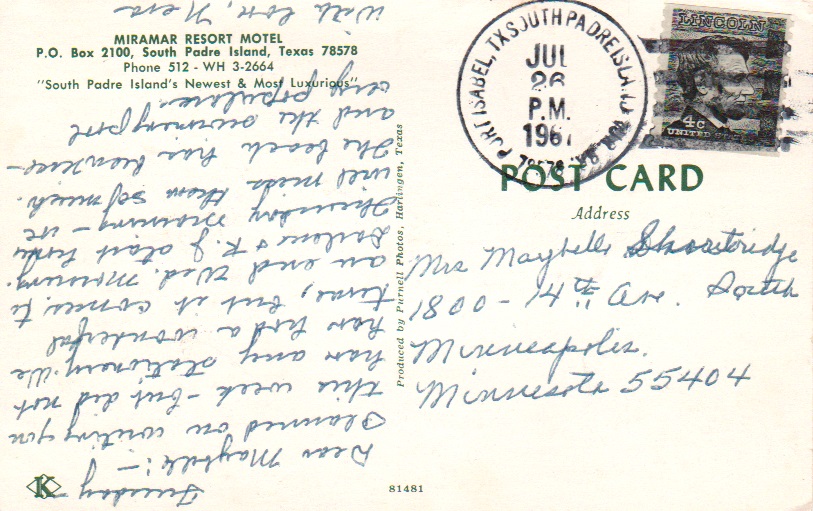 MIRAMAR RESORT MOTEL
P.O. Box 2100, South Padre Island, Texas 78578
Phone 512 - WH 3-2664
"South Padre Island's Newest & Most Luxurious"
Tuesday
Dear Maybelle:-
Planned on writing you
this week - but did not
have any stationery. We
have had a wonderful
time, but it comes to
an end Wed. morning.
Darlene & K. J. start home
Thursday morning - we
will miss them so much.
The beach has been
and the swimming pool
very popular.
With love, Neva
Produced by Purnell Photos, Harlingen, Texas
PORT ISABEL, TX SOUTH PADRE ISLAND
JUL
26
P.M.
196
78578
LINCOLN
4c
UNITED STATES
POST CARD
Address
Mrs Maybelle Shortridge
1800 - 14th Ave. South
Minneapolis.
Minnesota 55404
K
81481